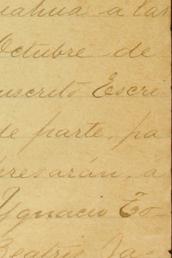 uahua a las
Octubre de
uscrito Escri
de parte, pa
resarán, á
Ygnacio To-
Beatris Ba-